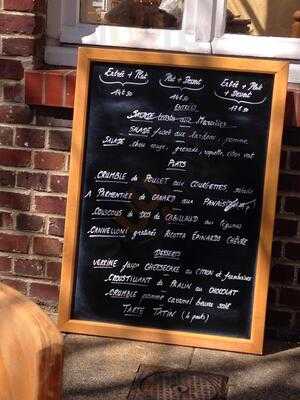 Entrée + Plat Plat + Dessert Entrée + Plat + Dessert
14€50 14€50 17€50
ENTRÉES
Marseiller
SALADE façon aux lardons, pomme
SALADE chou rouge, grenade, roquette, citron vert
PLATS
CRUMBLE DE POULET aux COURGETTES, salade
1 PARMENTIER DE CANARD aux PANAIS
COUSCOUS DE DOS DE CABILLAUD aux légumes
CANNELLONI gratinés RICOTTA ÉPINARDS CHÈVRE
DESSERTS
VERRINE façon CHEESECAKE au CITRON et framboises
CROUSTILLANT DE PRALIN AU CHOCOLAT
CRUMBLE pomme caramel beurre salé
TARTE TATIN (4 parts)